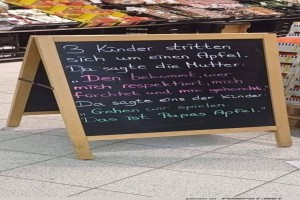 3 Kinder stritten
sich um einen Apfel.
Da sagte die Mutter:
"Den bekommt, wer
mich respektiert, mich
fürchtet und mir gehorcht."
Da sagte eins der Kinder:
"Gehen wir spielen.
Das ist Papas Apfel."